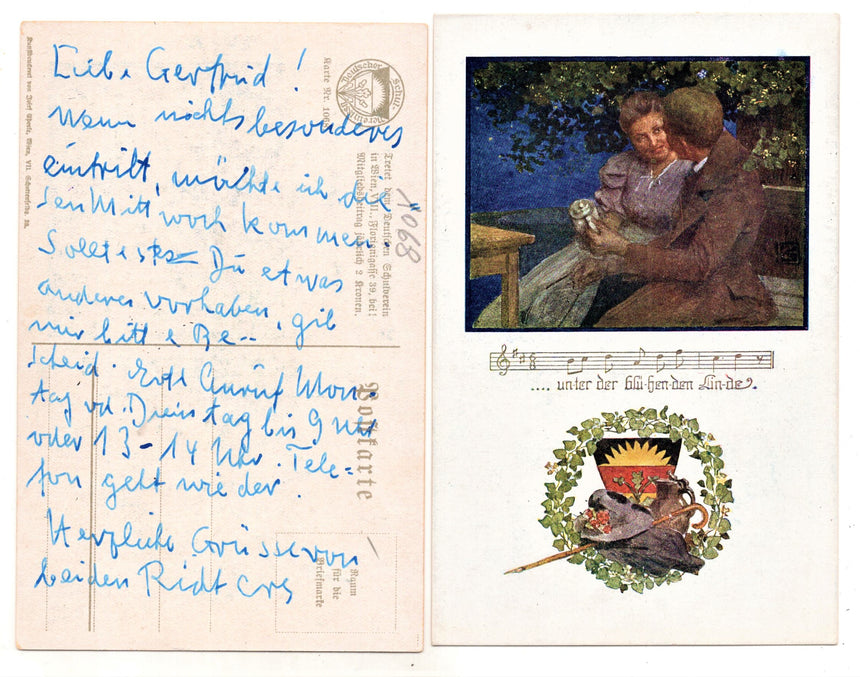 Liebe Gertrud!
Wenn nichts besonderes
eintritt, möchte ich die-
sen Mittwoch kommen.
Solltest Du etwas
anderes vorhaben, gib
mir bitte Be--
scheid. Evtl Anruf Mon-
tag od. Dienstag bis 9 Uhr
oder 13-14 Uhr. Tele-
fon geht wieder.
Herzliche Grüsse von
beiden
Deutscher Schulverein
Karte Nr. 1068
Tretet dem Deutschen Schulverein
in Wien, VIII., Florianigasse 39, bei!
Mitgliedsbeitrag jährlich 2 Kronen.
1068
Postkarte
Raum
für die
Briefmarke
.... un-ter der blü-hen-den Lin-de.